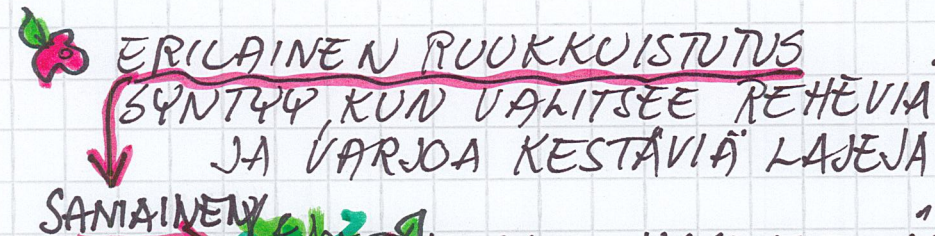 ERILAINEN RUUKKUISTUTUS
SYNTYY, KUN VALITSEE REHEVIÄ
JA VARJOA KESTÄVIÄ LAJEJA
SANIAINEN